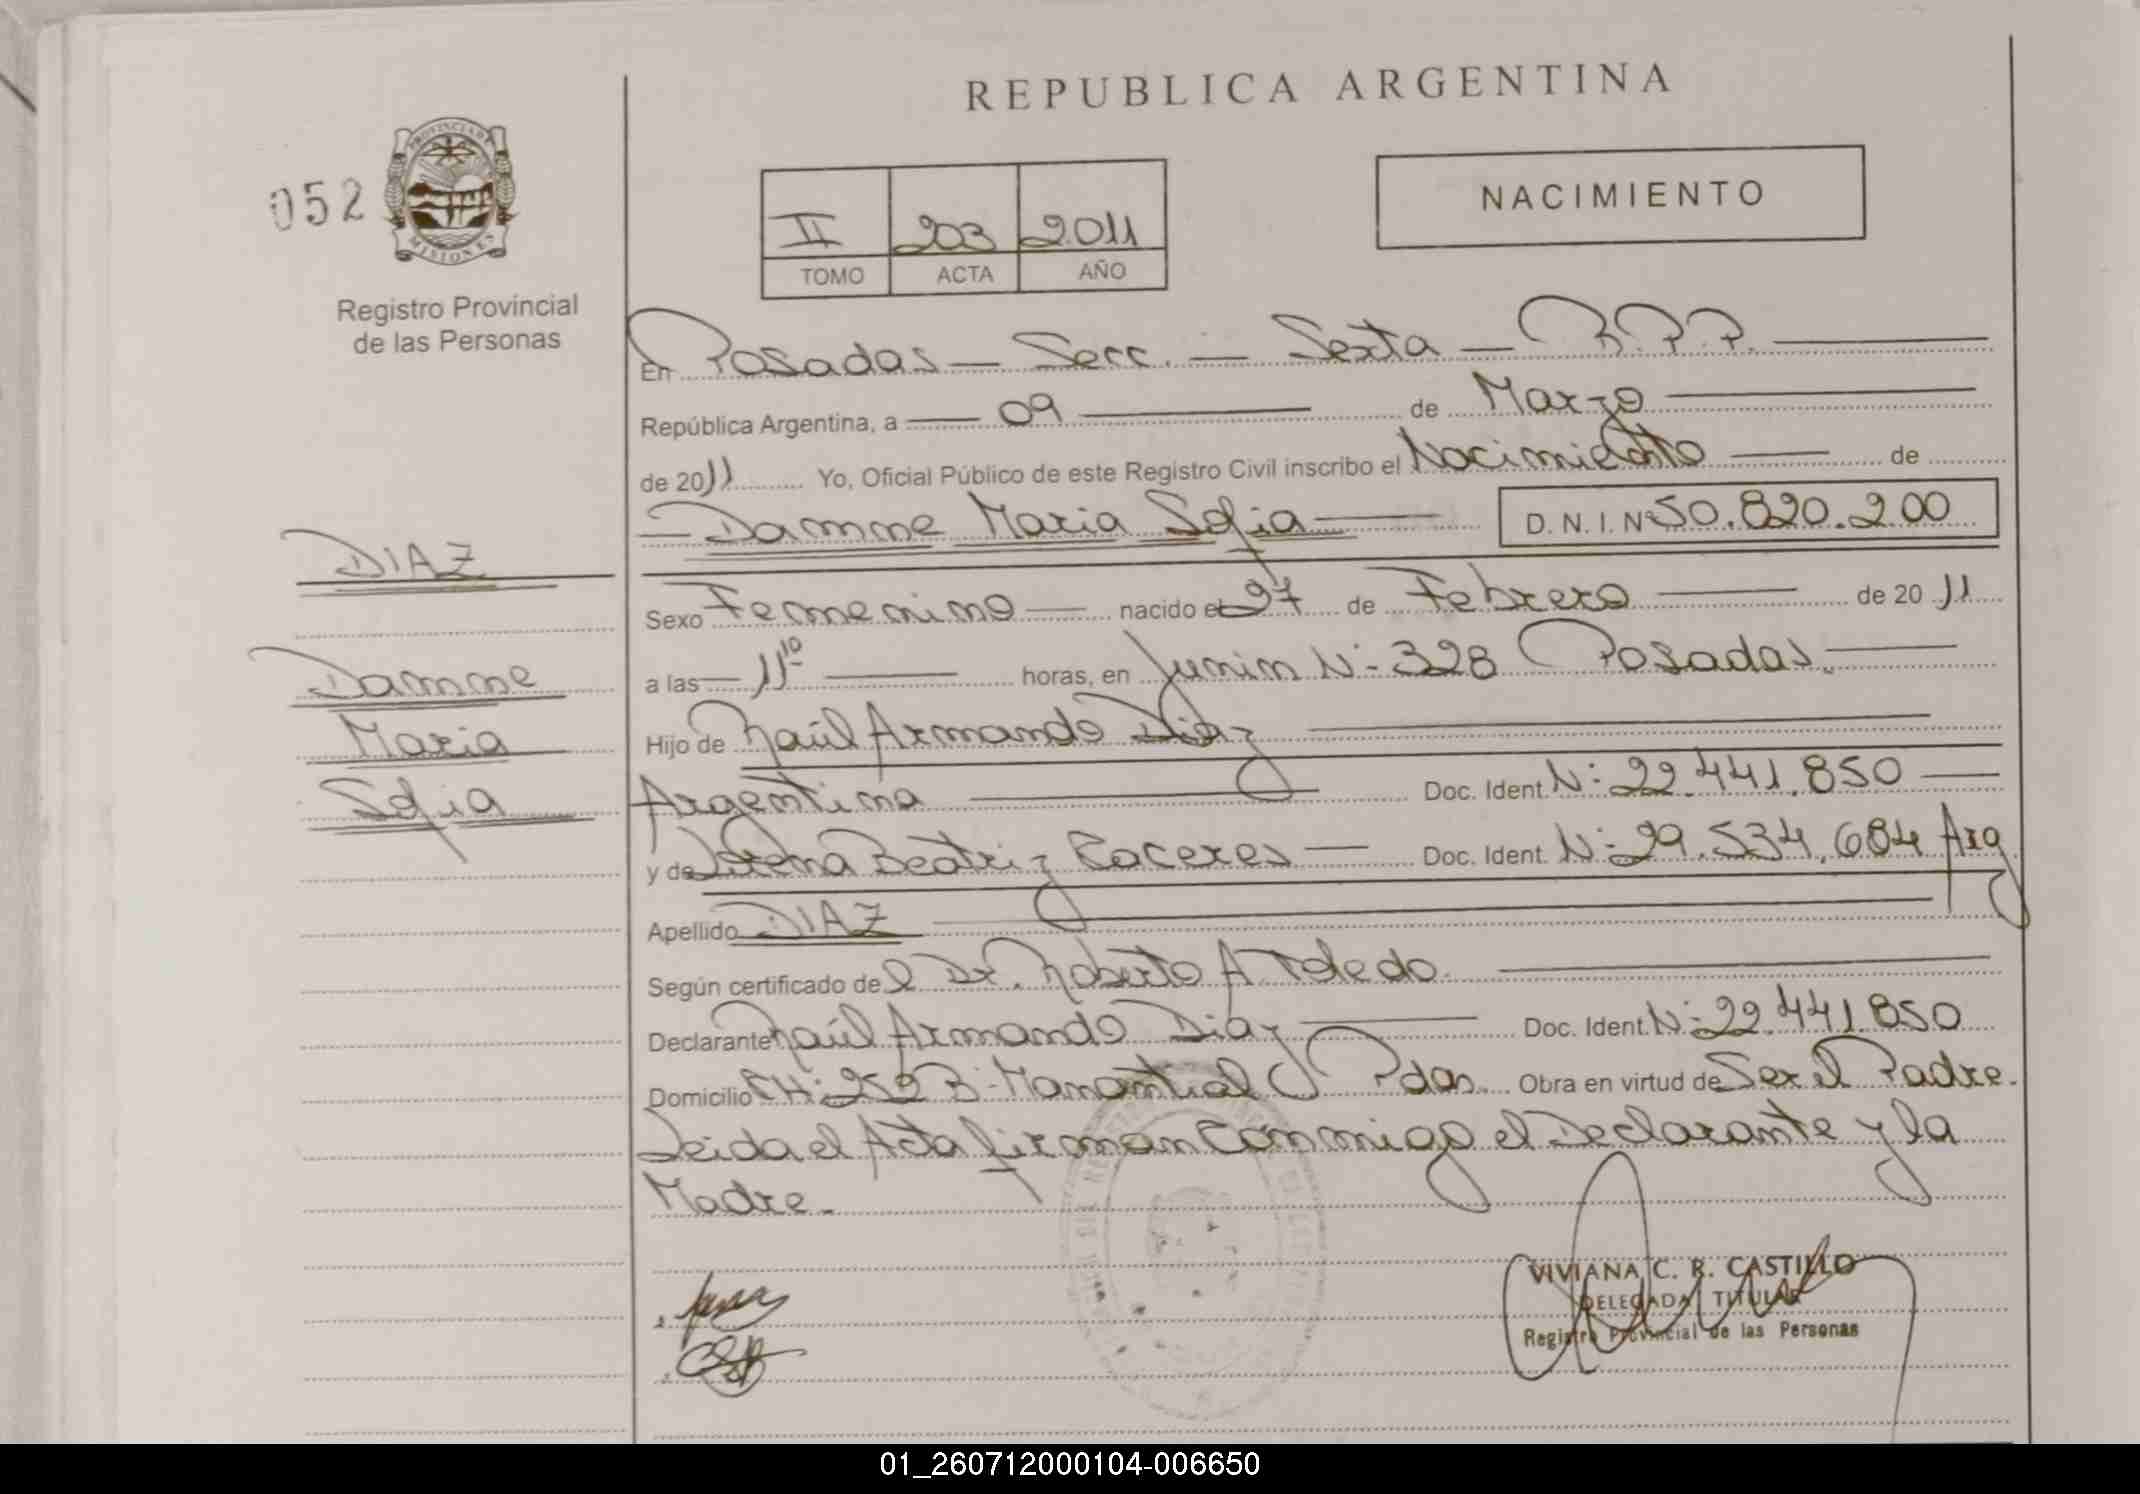 REPUBLICA ARGENTINA
052
PROVINCIA DE
MISIONES
Registro Provincial
de las Personas
II 203 2011
TOMO ACTA AÑO
NACIMIENTO
En Posadas — Secc. — Sexta — R.P.P.
República Argentina, a — 09 — de Marzo
de 2011 Yo, Oficial Público de este Registro Civil inscribo el Nacimiento — de
— Damme Maria Sofia — D. N. I. Nº 50.820.200
DIAZ
Damme
Maria
Sofia
Sexo Femenino — nacido el 27 de Febrero — de 2011
a las — 11¹⁰ — horas, en Junin Nº 328 Posadas. —
Hijo de Raúl Armando Diaz
Argentina — Doc. Ident. Nº 22.441.850 —
y de Lorena Beatriz Caceres — Doc. Ident. Nº 29.534.684 Arg
Apellido DIAZ
Según certificado del Dr. Roberto A Toledo.
Declarante Raúl Armando Diaz — Doc. Ident. Nº 22.441.850
Domicilio CH: 252 Bº Manantial Pdas. Obra en virtud de Ser el Padre.
Leida el Acta firman Conmigo el Declarante y la
Madre.-
VIVIANA C. R. CASTILLO
DELEGADA TITULAR
Registro Provincial de las Personas
01_260712000104-006650